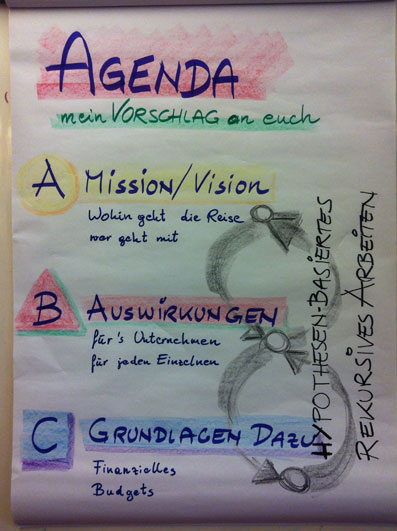 AGENDA
mein VORSCHLAG an euch
A MISSION/VISION
Wohin geht die Reise
wer geht mit
B AUSWIRKUNGEN
für's Unternehmen
für jeden Einzelnen
C GRUNDLAGEN DAZU
Finanzielles
Budgets
HYPOTHESEN-BASIERTES
REKURSIVES ARBEITEN